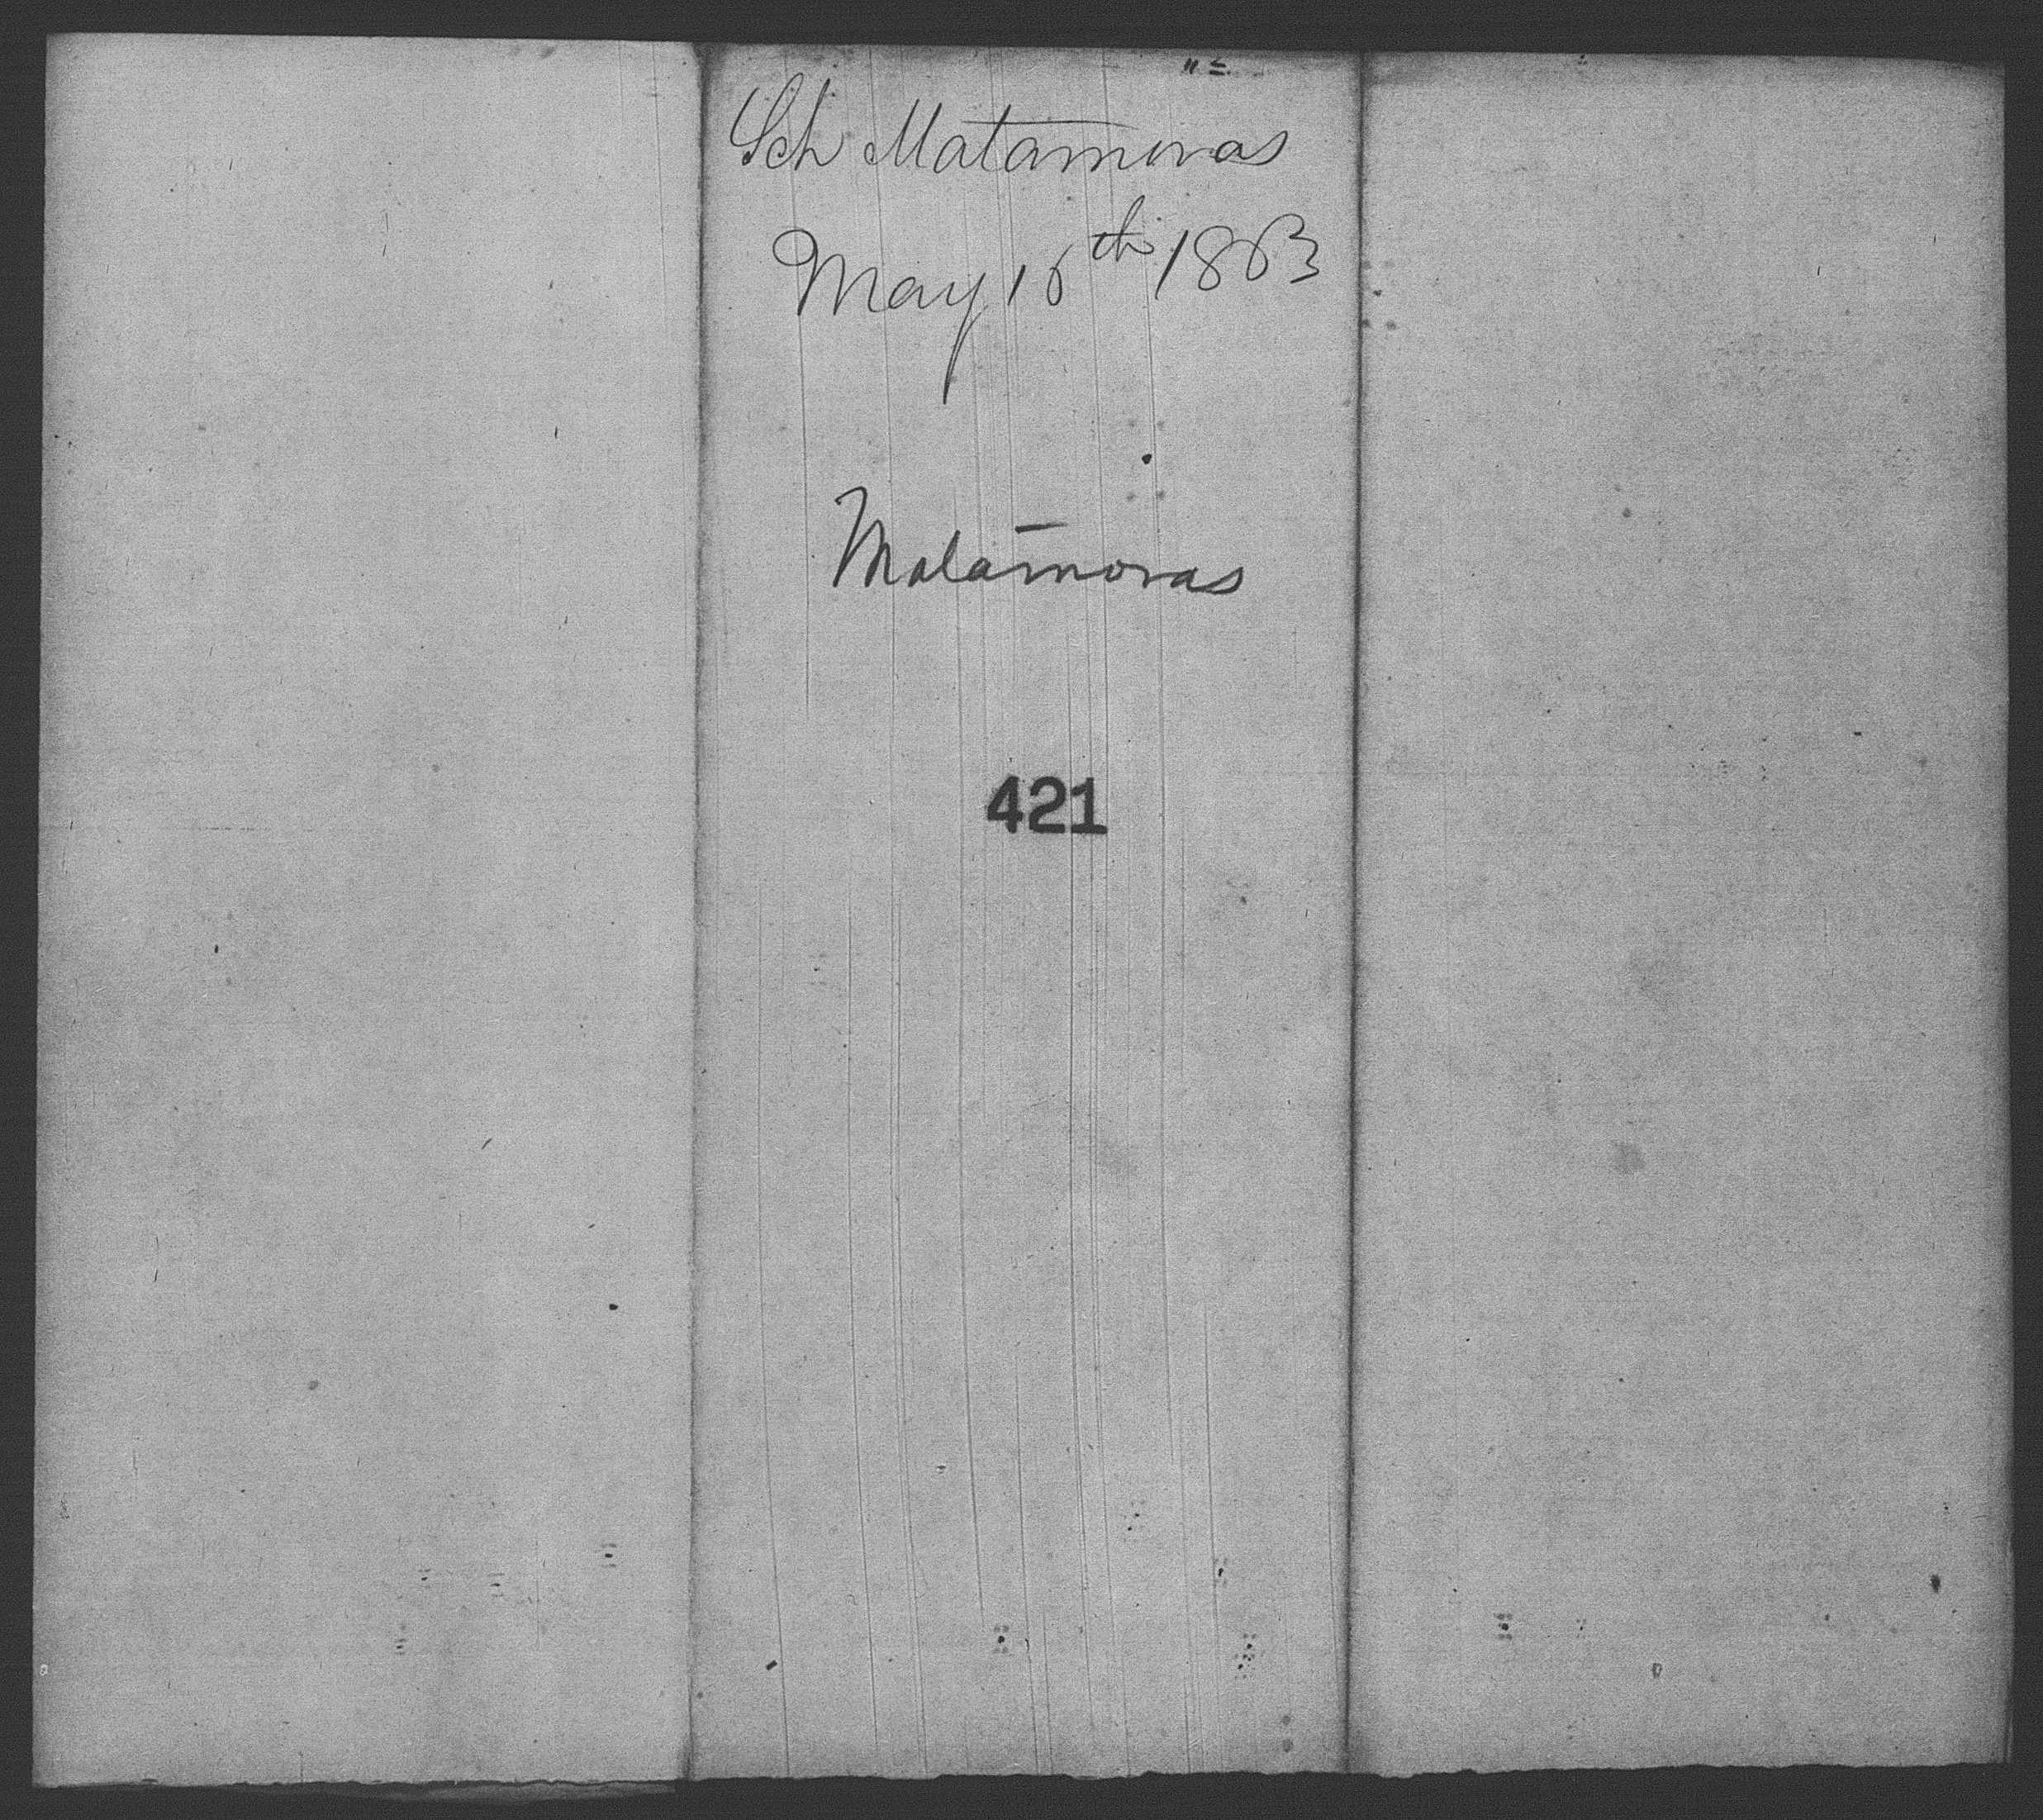 Sch Matamoras
May 16th 1863
Matamoras
421